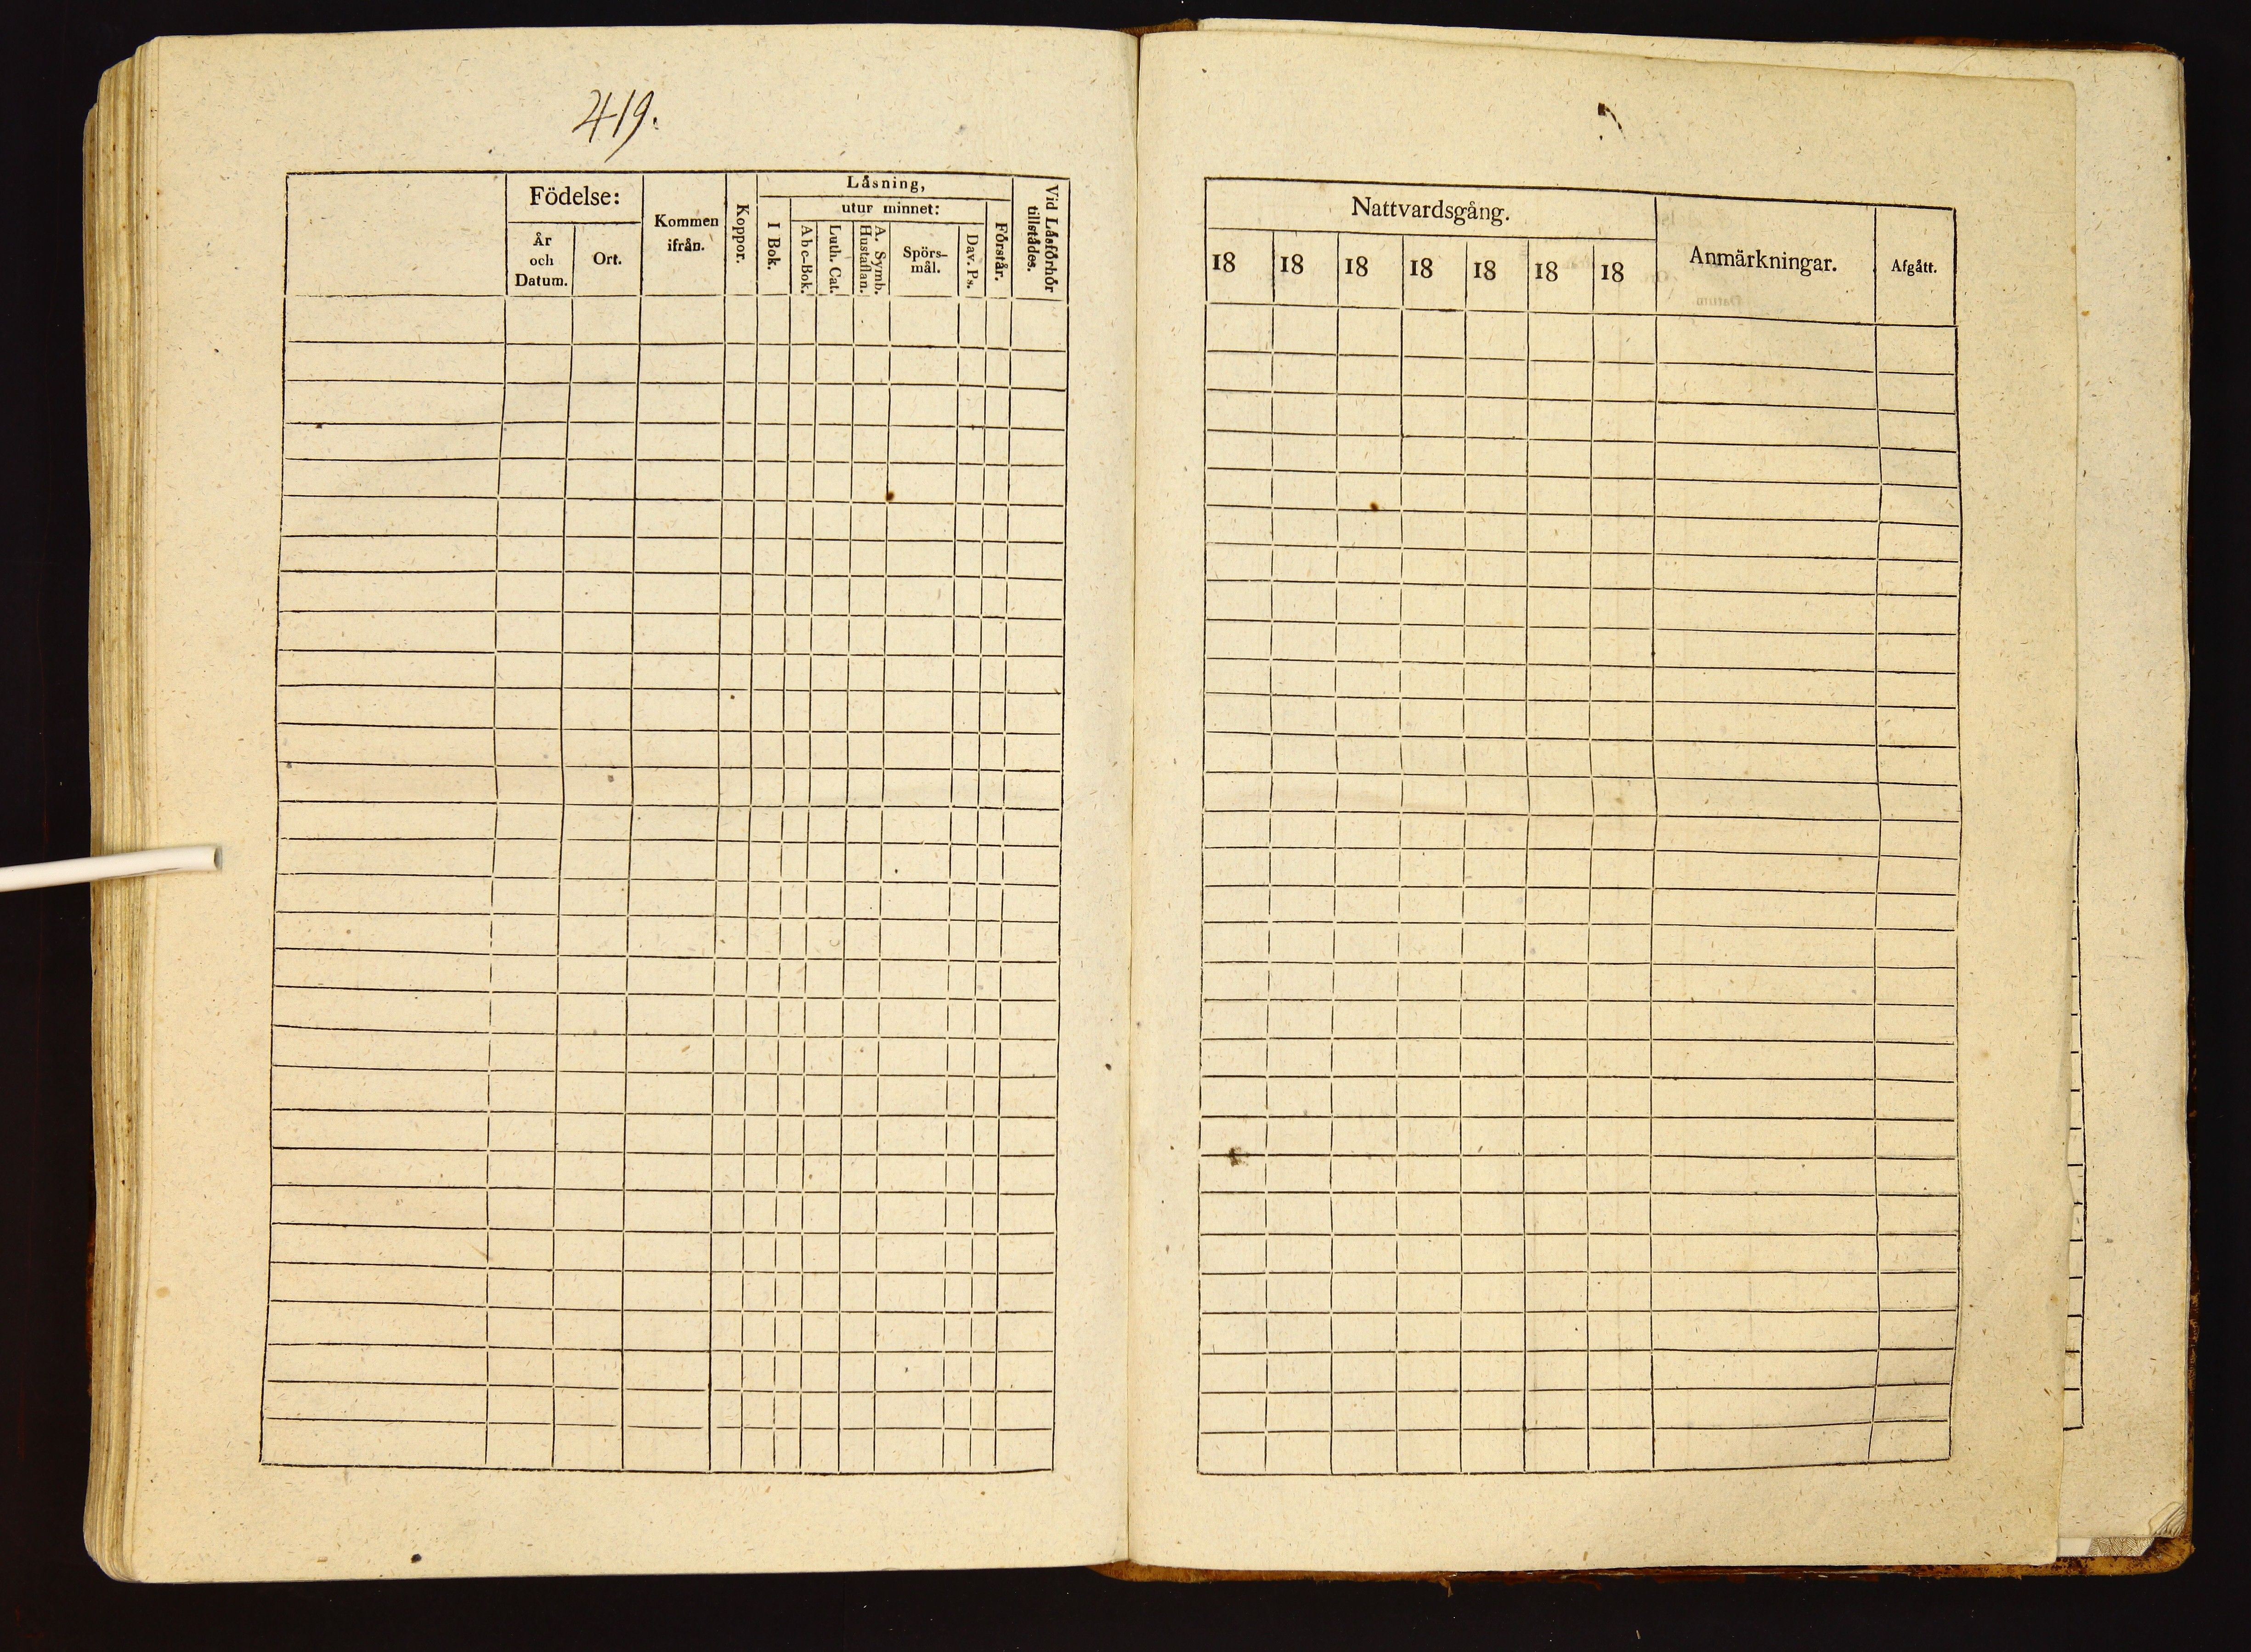 419.
Födelse:
År
och
Datum.
Ort.
Kommen
ifrån.
Koppor.
Låsning,
I Bok.
utur minnet:
Abc-Bok.
Luth. Cat.
A. Symb.
Hustaflan.
Spörs-
mål.
Dav. Ps.
Förstår.
Vid Låsförhör
tillstådes.
Nattvardsgång.
18 18 18 18 18 18 18
Anmärkningar.
Afgått.